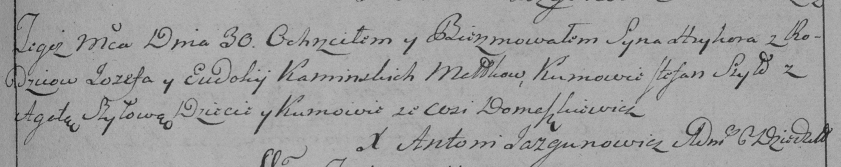 Tegoż Mca Dnia 30. Ochrzciłem y Bierzmowałem Syna Hrykora z Ro-
dzicow Jozefa y Eudokij Kaminskich Małżkow, Kumowie Stefan Szyło z
Agatą Szyłową Dziecie y Kumowie ze wsi Domaszkiewicz
X Antoni Jazgunowicz Adm